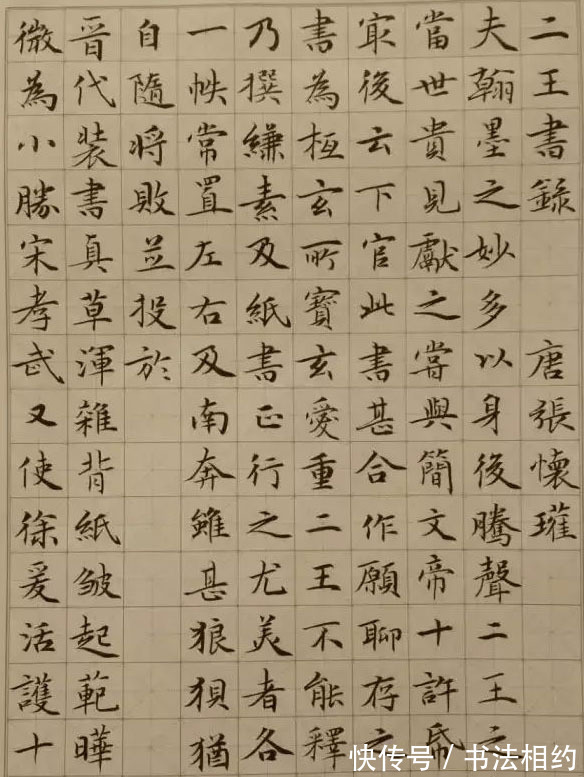 二王書錄 唐張懷瓘
夫翰墨之妙多以身後騰聲二王之
當世貴見獻之嘗與簡文帝十許帋
冣後云下官此書甚合作願聊存之
書為桓玄所寶玄愛重二王不能釋
乃撰縑素及紙書正行之尤美者各
一帙常置左右及南奔雖甚狼狽猶
自隨將敗並投於
晉代裝書真草渾雜背紙皱起範曄
微為小勝宋孝武又使徐爰活護十
快传号/书法相约